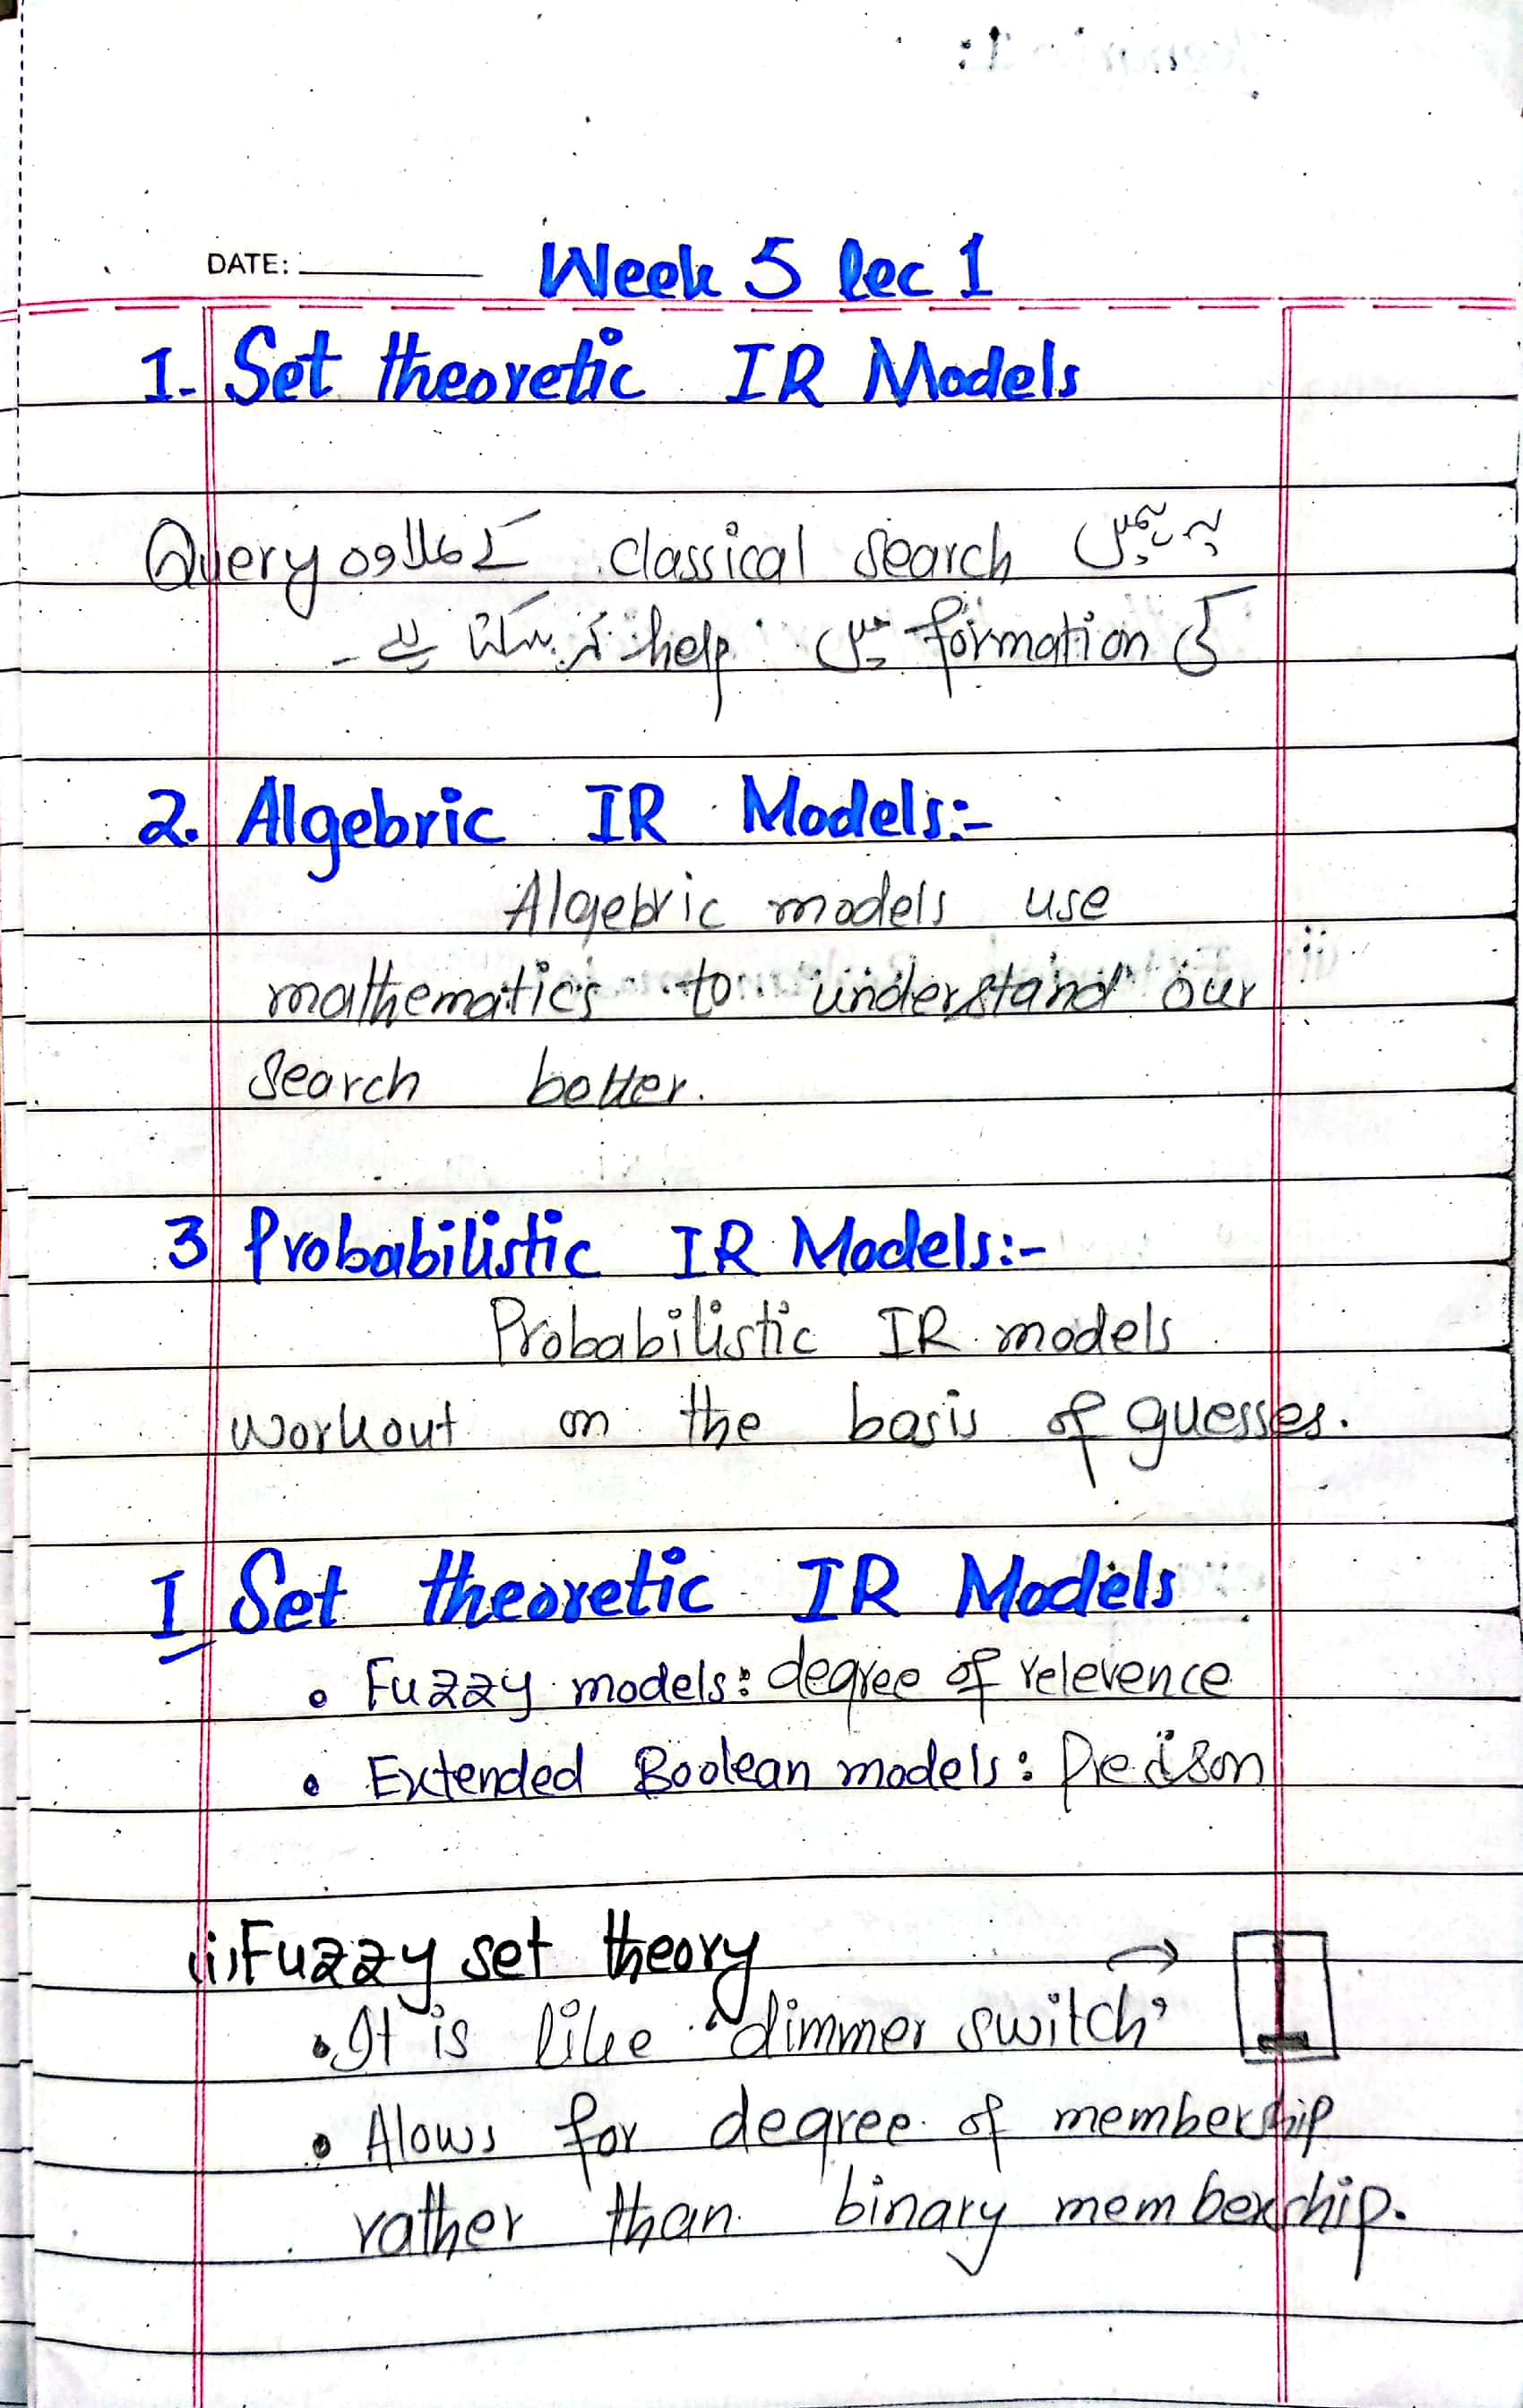 DATE:
Week 5 lec 1
1. Set theoretic IR Models
یہ ہمیں classical search کے علاوہ Query
کی formation میں help کر سکتا ہے -
2. Algebric IR Models:-
Algebric models use
mathematics to understand our
search better.
3 Probabilistic IR Models:-
Probabilistic IR models
workout on the basis of guesses.
I Set theoretic IR Models
• Fuzzy models: degree of relevence
• Extended Boolean models:
(i) Fuzzy set theory
• It is like "dimmer switch"
• Alows for degree of membership
rather than binary membership.